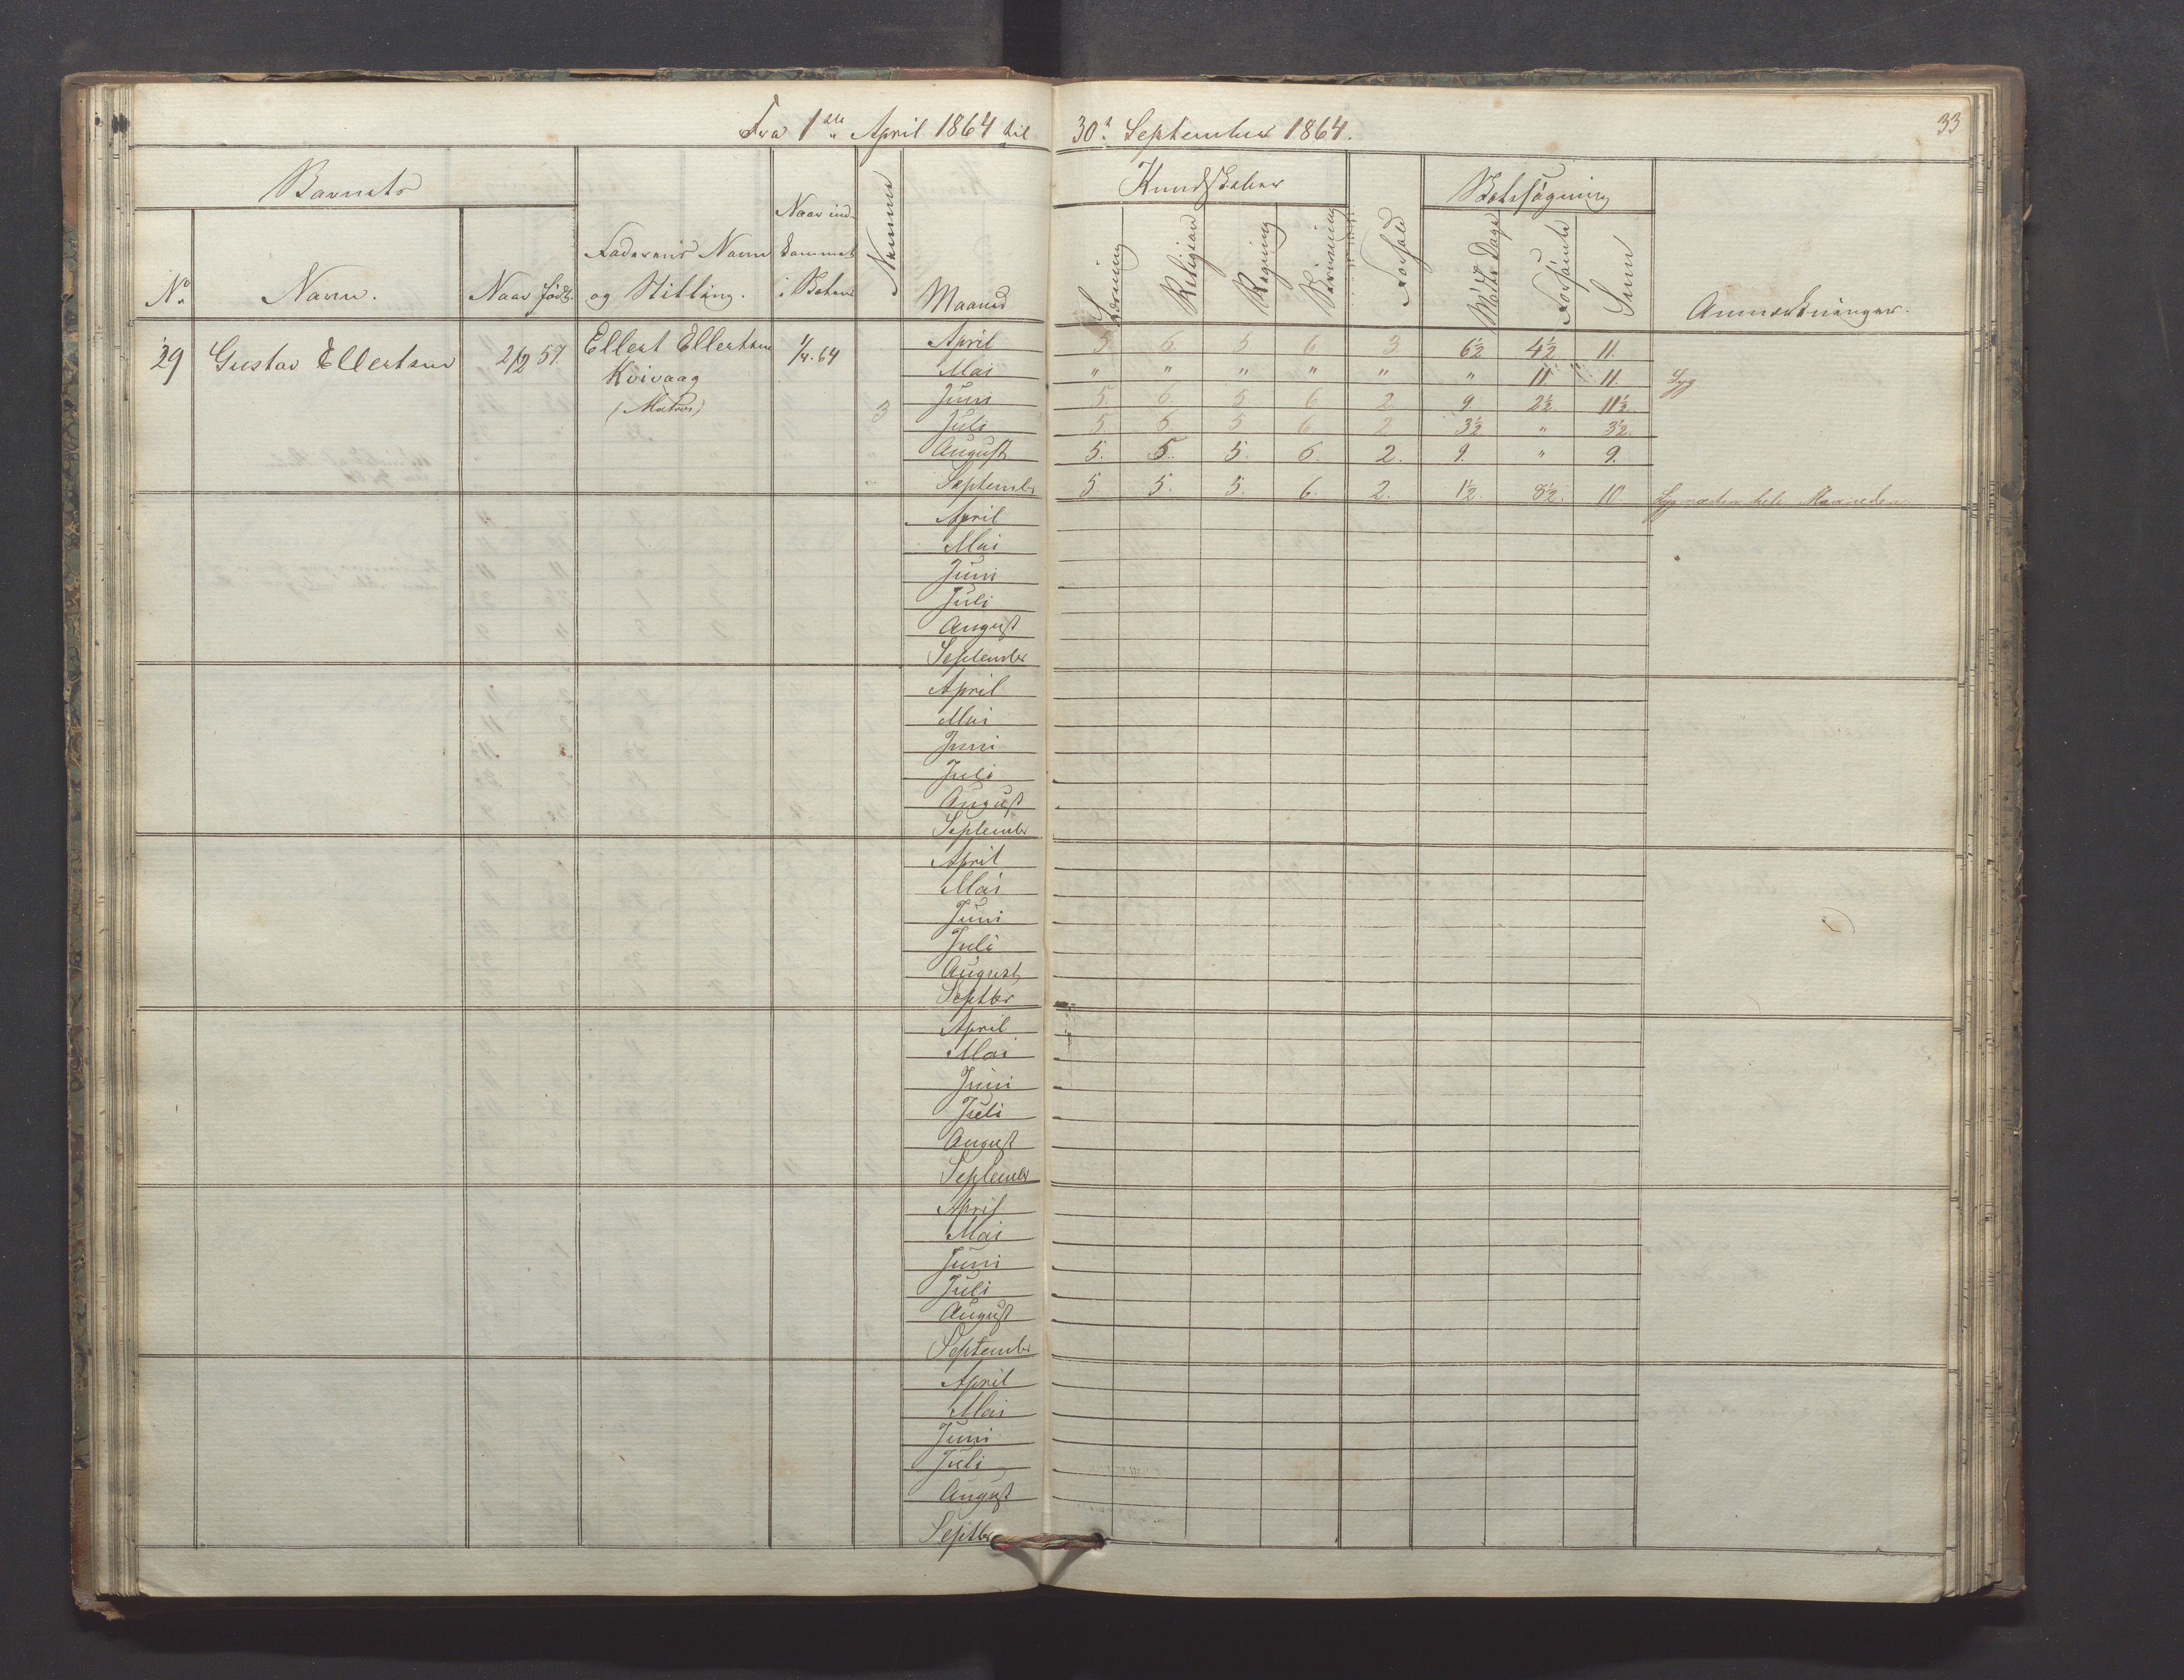 Fra 1ste April 1864 til 30te September 1864.
33
Barnets
Kundskaber
Skolesøgning
No
Navn.
Naar født.
Faderens Navn
og Stilling.
Naar ind-
kommet
i Skolen
Nummer
Maaned
Læsning
Religion
Regning
Skrivning
Forhold
Mødte Dage
Forsømte
Sum
Anmærkninger.
29 Gustav Ellertsen 2/12 57. Ellert Ellertsen 1/4.64 April 5. 6. 5. 6. 3. 6½ 4½ 11.
Kvivaag Mai " " " " " " 11 11. Syg
(Matros) 3 Juni 5. 6. 5. 6. 2. 9 2½ 11½
Juli 5. 6. 5. 6. 2. 3½ " 3½
August 5. 5. 5. 6. 2. 9. " 9.
September 5. 5. 5. 6. 2. 1½ 8½ 10. Syg næsten hele Maaneden
April
Mai
Juni
Juli
August
September
April
Mai
Juni
Juli
August
September
April
Mai
Juni
Juli
August
Septbr
April
Mai
Juni
Juli
August
September
April
Mai
Juni
Juli
August
September
April
Mai
Juni
Juli
August
Septbr